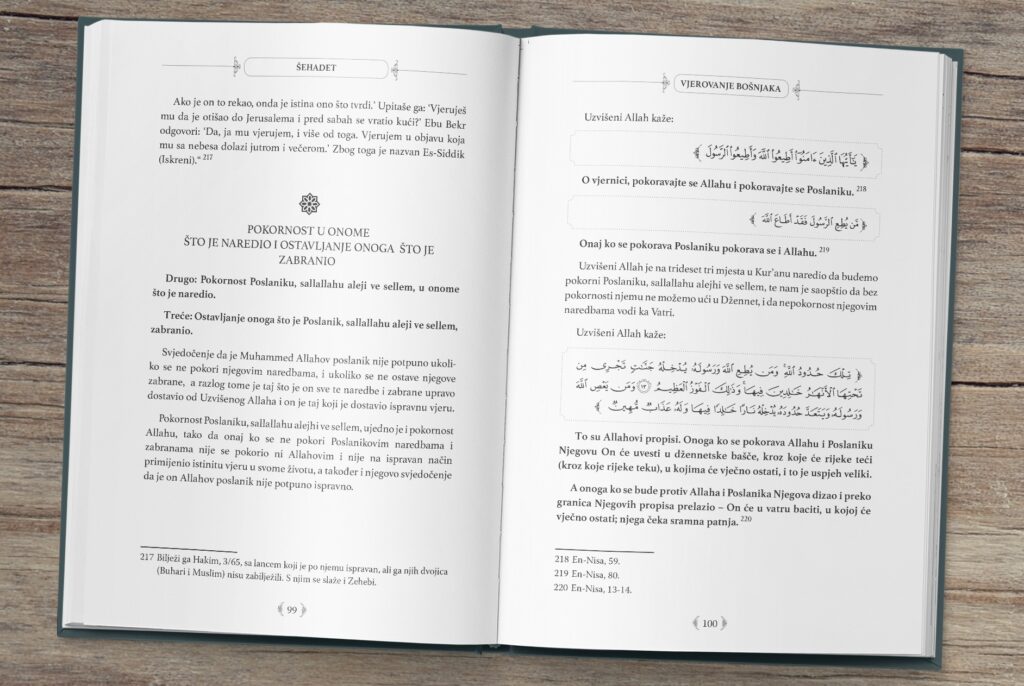 ŠEHADET
Ako je on to rekao, onda je istina ono što tvrdi.' Upitaše ga: 'Vjeruješ
mu da je otišao do Jerusalema i pred sabah se vratio kući?' Ebu Bekr
odgovori: 'Da, ja mu vjerujem, i više od toga. Vjerujem u objavu koja
mu sa nebesa dolazi jutrom i večerom.' Zbog toga je nazvan Es-Siddik
(Iskreni).“ 217
POKORNOST U ONOME
ŠTO JE NAREDIO I OSTAVLJANJE ONOGA ŠTO JE
ZABRANIO
Drugo: Pokornost Poslaniku, sallallahu aleji ve sellem, u onome
što je naredio.
Treće: Ostavljanje onoga što je Poslanik, sallallahu aleji ve sellem,
zabranio.
Svjedočenje da je Muhammed Allahov poslanik nije potpuno ukoli-
ko se ne pokori njegovim naredbama, i ukoliko se ne ostave njegove
zabrane, a razlog tome je taj što je on sve te naredbe i zabrane upravo
dostavio od Uzvišenog Allaha i on je taj koji je dostavio ispravnu vjeru.
Pokornost Poslaniku, sallallahu alejhi ve sellem, ujedno je i pokornost
Allahu, tako da onaj ko se ne pokori Poslanikovim naredbama i
zabranama nije se pokorio ni Allahovim i nije na ispravan način
primijenio istinitu vjeru u svome životu, a također i njegovo svjedočenje
da je on Allahov poslanik nije potpuno ispravno.
217 Bilježi ga Hakim, 3/65, sa lancem koji je po njemu ispravan, ali ga njih dvojica
(Buhari i Muslim) nisu zabilježili. S njim se slaže i Zehebi.
99
VJEROVANJE BOŠNJAKA
Uzvišeni Allah kaže:
﴿ يَٰٓأَيُّهَا ٱلَّذِينَ ءَامَنُوٓا۟ أَطِيعُوا۟ ٱللَّهَ وَأَطِيعُوا۟ ٱلرَّسُولَ ﴾
O vjernici, pokoravajte se Allahu i pokoravajte se Poslaniku. 218
﴿ مَّن يُطِعِ ٱلرَّسُولَ فَقَدْ أَطَاعَ ٱللَّهَ ﴾
Onaj ko se pokorava Poslaniku pokorava se i Allahu. 219
Uzvišeni Allah je na trideset tri mjesta u Kur'anu naredio da budemo
pokorni Poslaniku, sallallahu alejhi ve sellem, te nam je saopštio da bez
pokornosti njemu ne možemo ući u Džennet, i da nepokornost njegovim
naredbama vodi ka Vatri.
Uzvišeni Allah kaže:
﴿ تِلْكَ حُدُودُ ٱللَّهِ وَمَن يُطِعِ ٱللَّهَ وَرَسُولَهُۥ يُدْخِلْهُ جَنَّٰتٍ تَجْرِى مِن
تَحْتِهَا ٱلْأَنْهَٰرُ خَٰلِدِينَ فِيهَا وَذَٰلِكَ ٱلْفَوْزُ ٱلْعَظِيمُ ﴿١٣﴾ وَمَن يَعْصِ ٱللَّهَ
وَرَسُولَهُۥ وَيَتَعَدَّ حُدُودَهُۥ يُدْخِلْهُ نَارًا خَٰلِدًا فِيهَا وَلَهُۥ عَذَابٌ مُّهِينٌ ﴾
To su Allahovi propisi. Onoga ko se pokorava Allahu i Poslaniku
Njegovu On će uvesti u džennetske bašče, kroz koje će rijeke teći
(kroz koje rijeke teku), u kojima će vječno ostati, i to je uspjeh veliki.
A onoga ko se bude protiv Allaha i Poslanika Njegova dizao i preko
granica Njegovih propisa prelazio – On će u vatru baciti, u kojoj će
vječno ostati; njega čeka sramna patnja. 220
218 En-Nisa, 59.
219 En-Nisa, 80.
220 En-Nisa, 13-14.
100